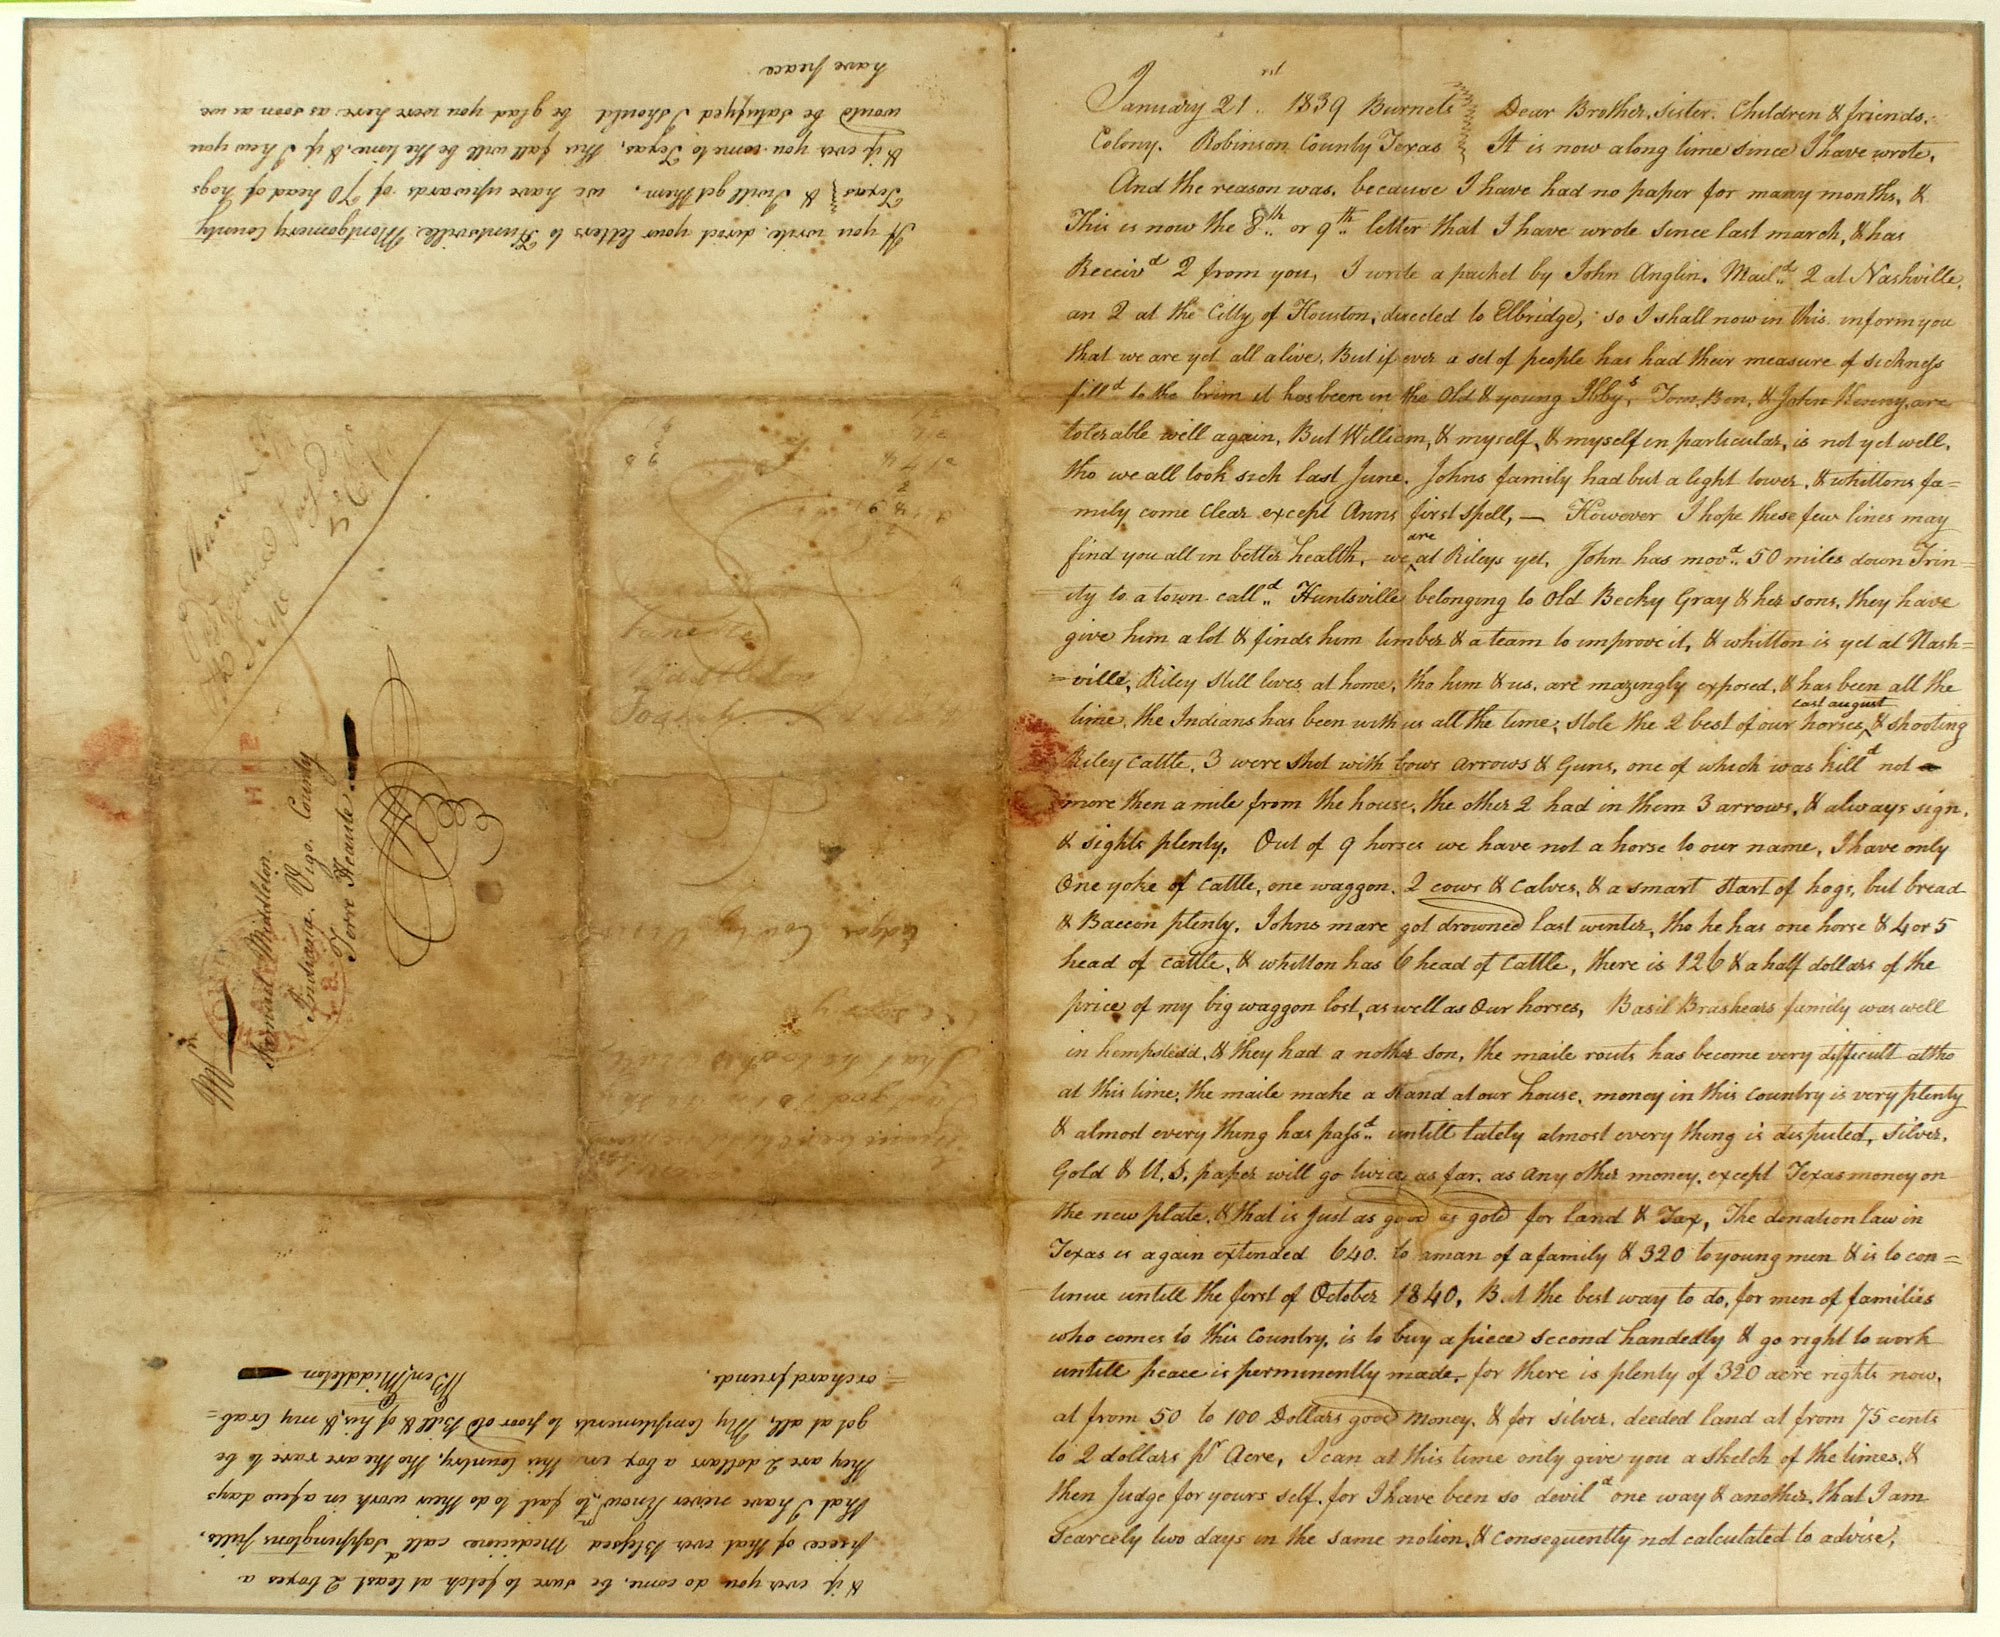 January 21rst 1839 Burnets
Colony. Robinson County Texas
Dear Brother, Sister. Children & friends.
It is now along time since I have wrote,
And the reason was. because I have had no paper for many months, &
This is now the 8th or 9th letter that I have wrote since last march, & has
Receivd 2 from you, I wrote a packet by John Anglin. Maild 2 at Nashville,
an 2 at the Citty of Houston, directed to Elbridge, so I shall now in this inform you
that we are yet all alive. But if ever a set of people has had their measure of sickness
filld to the brim it has been in the Old & young Ibbys, Tom, Ben, & John Kenny, are
tolerable well again, But William, & myself, & myself in particular, is not yet well,
tho we all took sick last June. Johns family had but a light tower, & whittons fa=
mily come clear except Anns first spell, — However I hope these few lines may
find you all in better health, we are at Rileys yet, John has movd 50 miles down Trin=
ity to a town calld Huntsville belonging to Old Becky Gray & her sons, they have
give him a lot & finds him timber & a team to improve it, & whitton is yet at Nash=
=ville, Riley still lives at home, tho him & us. are mazingly exposed, & has been all the
time, the Indians has been with us all the time; stole the 2 best of our horses last august & shooting
Riley cattle, 3 were shot with bows arrows & Guns, one of which was killd not
more then a mile from the house, the other 2 had in them 3 arrows, & always sign,
& sights plenty, Out of 9 horses we have not a horse to our name, I have only
One yoke of cattle, one waggon, 2 cows & calves, & a smart start of hogs, but bread
& Baccon plenty, Johns mare got drowned last winter, tho he has one horse & 4 or 5
head of cattle, & whitton has 6 head of cattle, there is 126 & a half dollars of the
price of my big waggon lost, as well as Our horses, Basil Brashears family was well
in hempstedd, & they had a nother son, the maile routs has become very difficult altho
at this time, the maile make a stand at our house, money in this country is very plenty
& almost every thing has passd untill lately almost every thing is disputed, silver,
Gold & U.S. paper will go twice as far. as any other money. except Texas money on
the new plate, & that is just as good as gold for land & Tax, The donation law in
Texas is again extended 640. to a man of a family & 320 to young men & is to con=
tinue untill the first of October 1840, But the best way to do, for men of families
who comes to this Country, is to buy a piece second handedly & go right to work
untill peace is perminently made, for there is plenty of 320 acre rights now,
at from 50 to 100 Dollars good money, & for silver. deeded land at from 75 cents
to 2 dollars pr Acre, I can at this time only give you a sketch of the times, &
then Judge for yours self. for I have been so devild one way & another, that I am
scarcely two days in the same notion, & consequently not calculated to advise,
& if ever you do come, be sure to fetch at least 2 boxes a
piece of that ever Blessed Medicine calld Sappingtons pills,
that I have never known to fail to do their work in a few days
they are 2 dollars a box in this Country, tho the are rare to be
got at all, My Complements to poor old Bill & of his, & my Crab=
=orchard friends.
Ben Middleton
If you write, direct your letters to Huntsville, Montgomery County
Texas & I will get them, we have upwards of 70 head of hogs
& if ever you come to Texas, this fall will be the time, & if I hew you
would be satisfyed I should be glad you were here as soon as we
have peace
Middleton
Indiana. Vigo. County
Terre Heaute